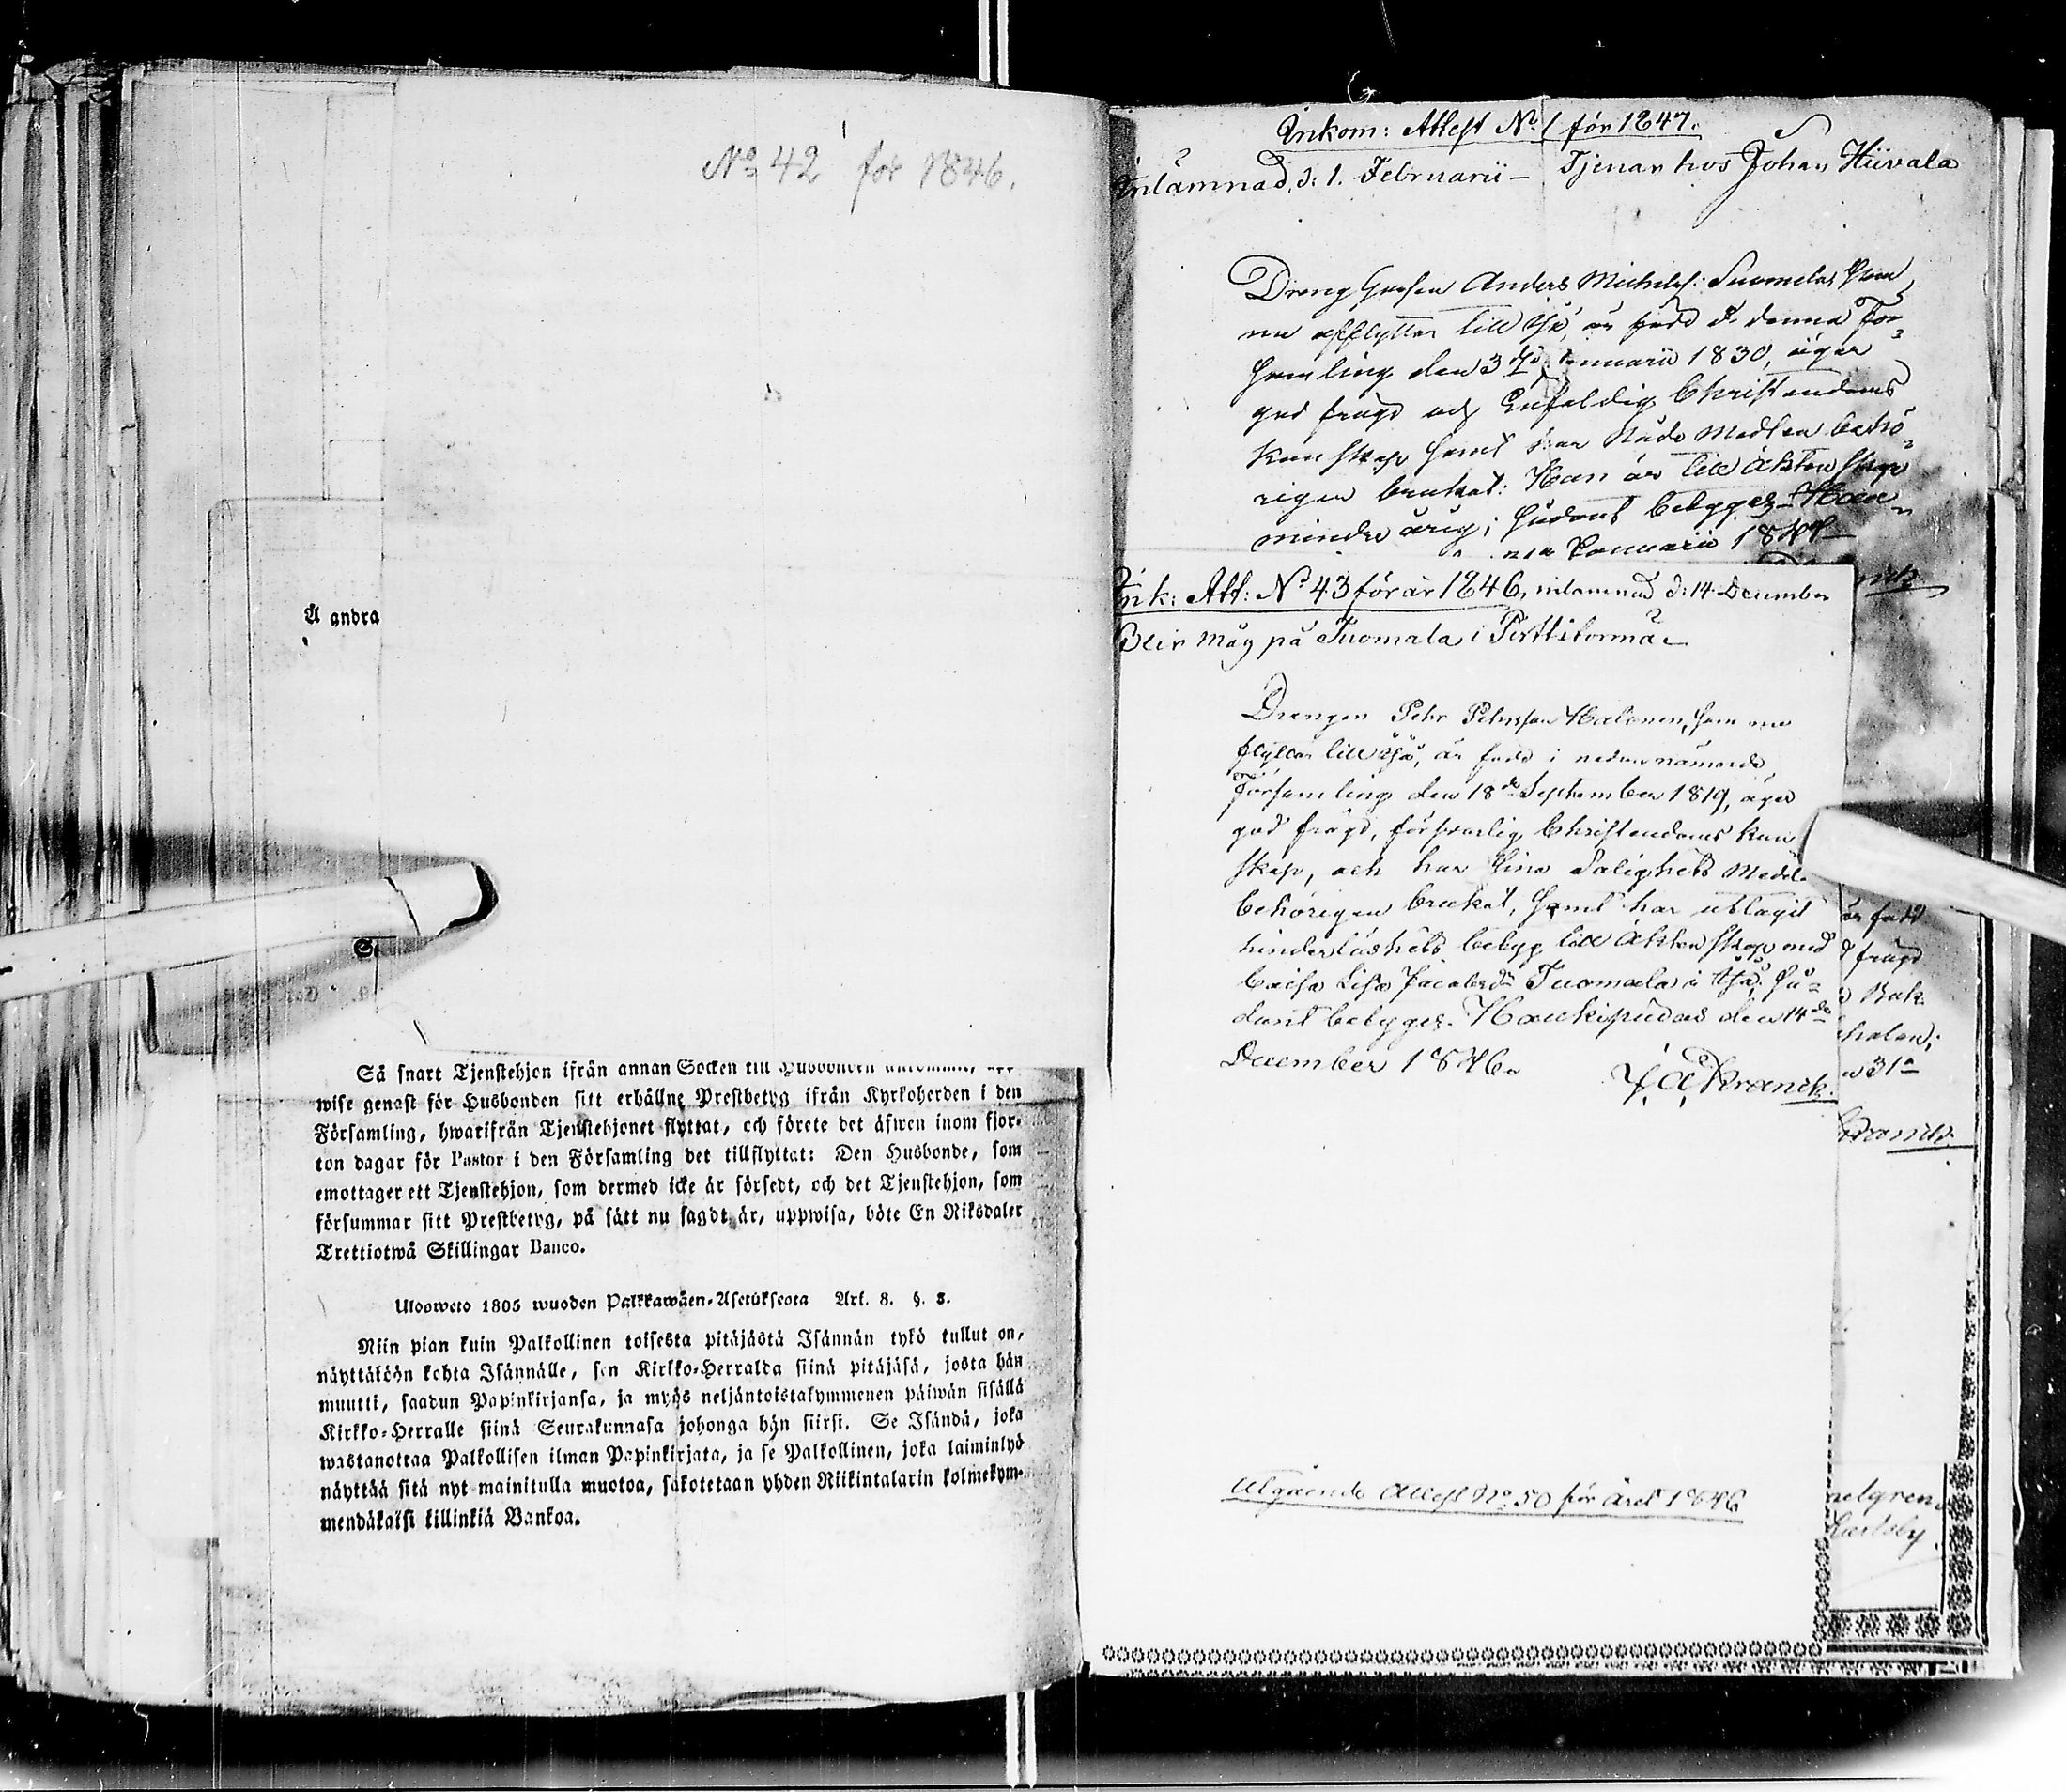 No 42 för 1846.
Å andra
Så snart Tjenstehjon ifrån annan Socken till Husbonden
wise genast för Husbonden sitt erhållne Prestbetyg ifrån Kyrkoherden i den
Församling, hwarifrån Tjenstehjonet flyttat, och förete det äfwen inom fjor-
ton dagar för Pastor i den Församling det tillflyttat: Den Husbonde, som
emottager ett Tjenstehjon, som dermed icke är försedt, och det Tjenstehjon, som
försummar sitt Prestbetyg, på sätt nu sagdt är, uppwisa, böte En Riksdaler
Trettiotwå Skillingar Banco.
Ulosweto 1805 wuoden Palkkawäen-Asetuksesta Art. 8. §. 8.
Niin pian kuin Palkollinen toisesta pitäjästä Isännän tykö tullut on,
näyttäköön kohta Isännälle, sen Kirkko-Herralda siinä pitäjäsä, josta hän
muutti, saadun Papinkirjansa, ja myös neljäntoistakymmenen päiwän sisällä
Kirkko-Herralle siinä Seurakunnasa johonga hän siirsi. Se Isändä, joka
wastanottaa Palkollisen ilman Papinkirjata, ja se Palkollinen, joka laiminlyö
näyttää sitä nyt mainitulla muotoa, sakotetaan yhden Riikintalarin kolmekym-
mendäkaksi killinkiä Bankoa.
Inkom: Attest No 1 för 1847.
Inlämnad, d: 1. Februarii – Tjenar hos Johan Hiivala
Dreng Gossen Anders Michelss: Suomela, som
nu afflyttar till Ijo, är född i denna För-
samling den 3 Januarii 1830, äger
god frägd och Enfaldig Christendoms
kunskap samt har Nåde Medlen behö-
rigen brukat: Han är till Äktenskap
minderårig; sådant betyges
Januarii 1847
Ink: Att: No 43 för år 1846, inlämnad d: 14 December
Blir Måg på Tuomala i Pirttitörmä –
Drengen Pehr Pehrsson Halonen, som nu
flyttar till Ijo, är född i nedannämnde
Församling den 18de September 1819, äger
god frägd, försvarlig Christendoms kun
skap, och har sina Salighets Medel
behörigen brukat, samt har uttagit
hinderlöshets betyg till Äktenskap med
Caisa Lisa Jacobsdr Tuomala i Ijo; så-
dant betyges. Haukipudas den 14de
December 1846.
J. A. Franck.
är född
frägd
31a
Utgående Attest No 50 för året 1846